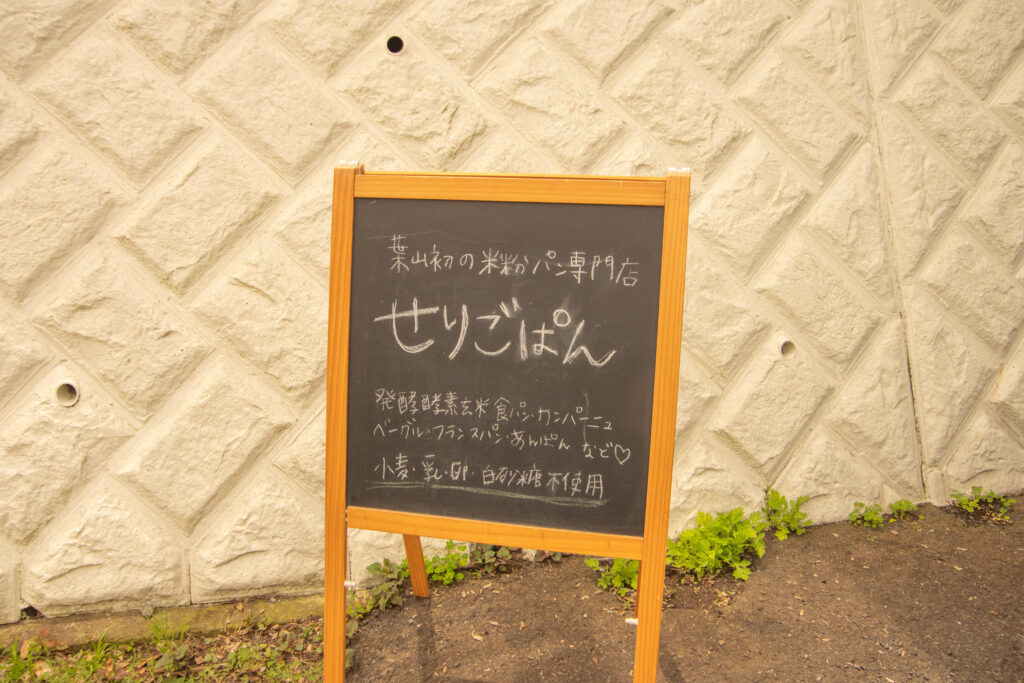 葉山初の米粉パン専門店
せりごぱん
発酵酵素玄米食パン・カンパーニュ
ベーグル・フランスパン・あんぱん など♡
小麦・乳・卵・白砂糖不使用